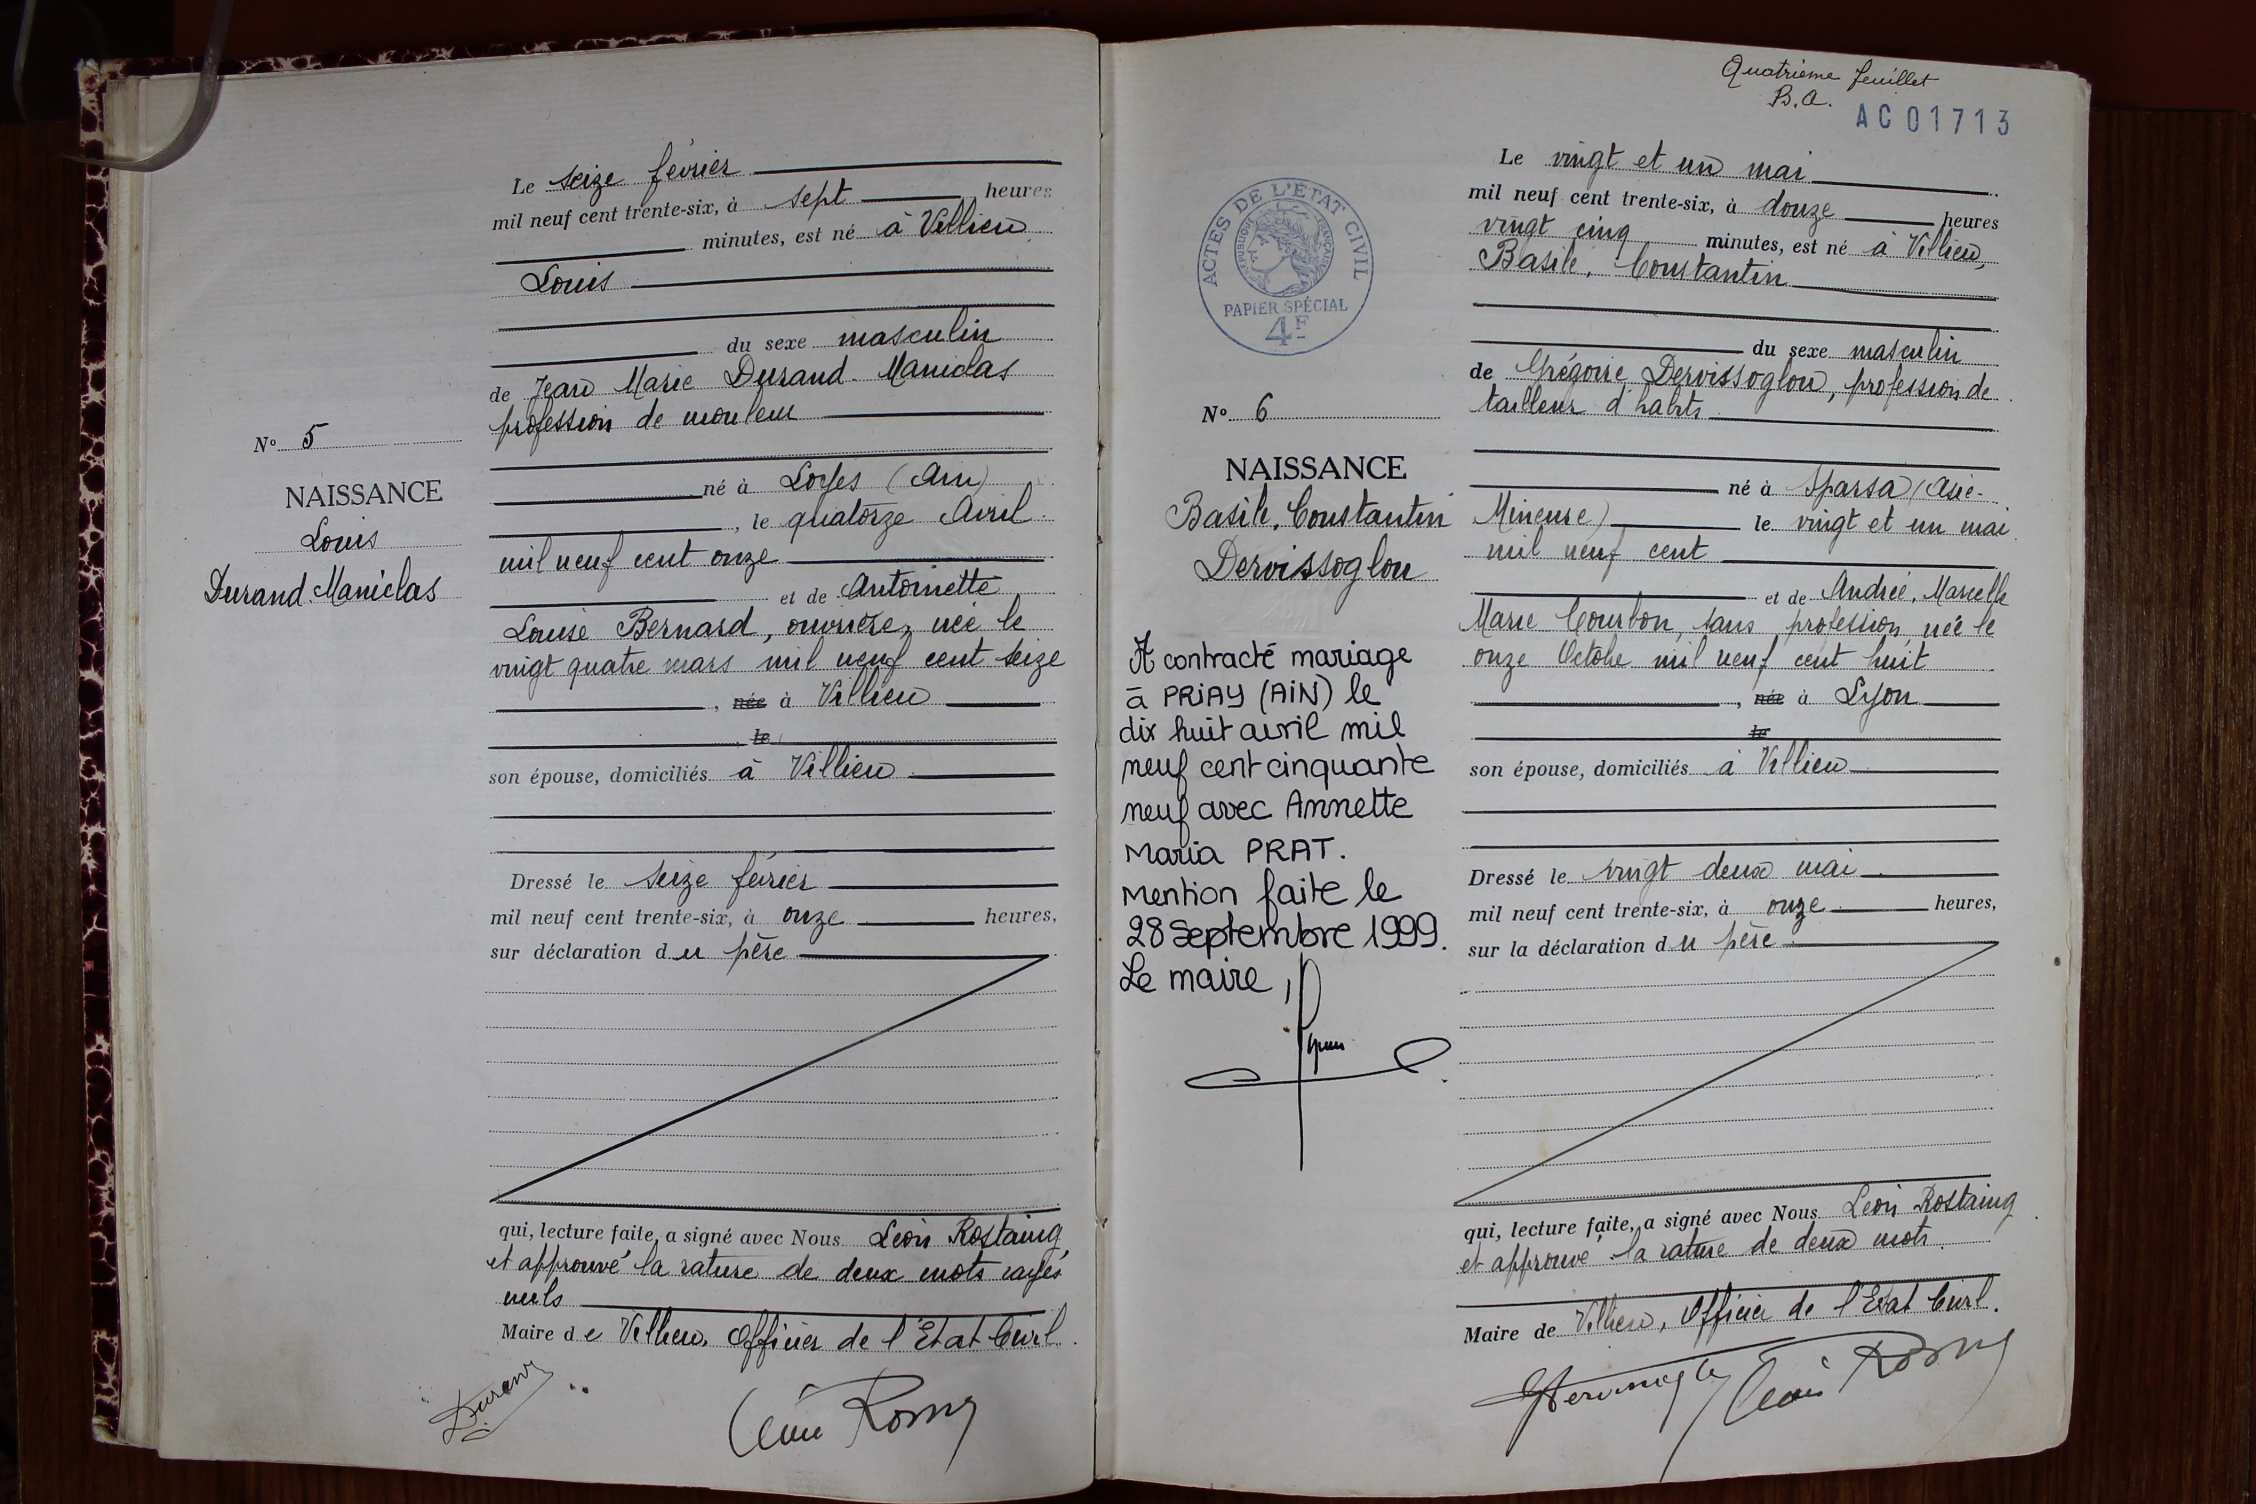 Le seize février
mil neuf cent trente-six, à sept heures
minutes, est né à Villieu
Louis
du sexe masculin
de Jean Marie Durand-Maniclas
profession de mouleur
né à Loyes (Ain)
, le quatorze Avril
mil neuf cent onze
et de Antoinette
Louise Bernard, ouvrière, née le
vingt quatre mars mil neuf cent seize
, née à Villieu
, le
son épouse, domiciliés à Villieu
Dressé le seize février
mil neuf cent trente-six, à onze heures,
sur déclaration du père
qui, lecture faite, a signé avec Nous Léon Rostaing
et approuvé la rature de deux mots rayés
nuls
Maire de Villieu, Officier de l'Etat Civil.
Durand
N° 5
NAISSANCE
Louis
Durand-Maniclas
Quatrième feuillet
B.A.
AC01713
ACTES DE L'ÉTAT CIVIL
RÉPUBLIQUE FRANÇAISE
PAPIER SPÉCIAL
4F
N° 6
NAISSANCE
Basile, Constantin
Dervissoglou
A contracté mariage
à PRIAY (AIN) le
dix huit avril mil
neuf cent cinquante
neuf avec Annette
Maria PRAT.
Mention faite le
28 Septembre 1999.
Le maire,
Le vingt et un mai
mil neuf cent trente-six, à douze heures
vingt cinq minutes, est né à Villieu,
Basile, Constantin
du sexe masculin
de Grégoire Dervissoglou, profession de
tailleur d'habits
né à Sparsa (Asie-
Mineure) le vingt et un mai
mil neuf cent
et de Andrée, Marcelle
Marie Courbon, sans profession, née le
onze Octobre mil neuf cent huit
, née à Lyon
le
son épouse, domiciliés à Villieu
Dressé le vingt deux mai
mil neuf cent trente-six, à onze heures,
sur la déclaration du père
qui, lecture faite, a signé avec Nous Léon Rostaing
et approuvé la rature de deux mots.
Maire de Villieu, Officier de l'Etat Civil.